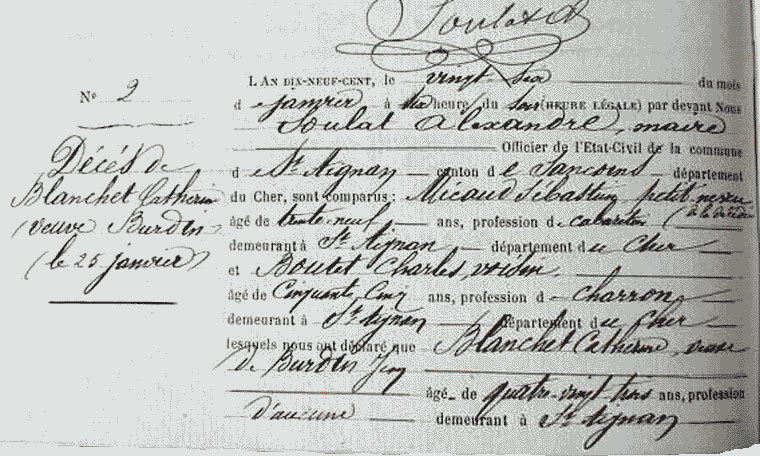 Soulat A
L'AN DIX-NEUF-CENT, le vingt six du mois
Nº 2
de janvier à six heure du soir (HEURE LÉGALE) par devant Nous
Soulat Alexandre, maire
Officier de l'Etat-Civil de la commune
Décès de
Blanchet Catherine
(veuve Burdin)
(le 25 janvier)
de St Aignan canton de Sancoins département
du Cher, sont comparus : Micaud Sébastien petit neveu
âgé de trente neuf ans, profession de cabaretier (à la décédée
demeurant à St Aignan département du Cher
et Boutet Charles, voisin,
âgé de Cinquante Cinq ans, profession de charron
demeurant à St Aignan département du Cher
lesquels nous ont déclaré que Blanchet Catherine, veuve
de Burdin Jean
âgée de quatre-vingt trois ans, profession
d'aucune demeurant à St Aignan